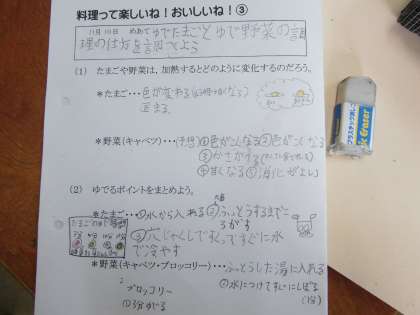 料理って楽しいね!おいしいね!③
11月10日 めあて ゆでたまごとゆで野菜の調
理の仕方を言おう
(1) たまごや野菜は、加熱するとどのように変化するのだろう。
*たまご・・・色が変わる
固まる
*野菜(キャベツ)・・・(予想)①色がこくなる②色がこくなる
③かさがする
④甘くなる⑤消化がよい
(2) ゆでるポイントをまとめよう。
*たまご・・・①水から入れる②ふっとうするまで
ころがす
③穴じゃくしですくってすぐに水
で冷やす
たまごのゆで時間
*野菜(キャベツ・ブロッコリー)・・・ふっとうした湯に入れる
②水につけてすぐにしぼる
ブロッコリー
①3分ゆでる
(1分)
Eraser